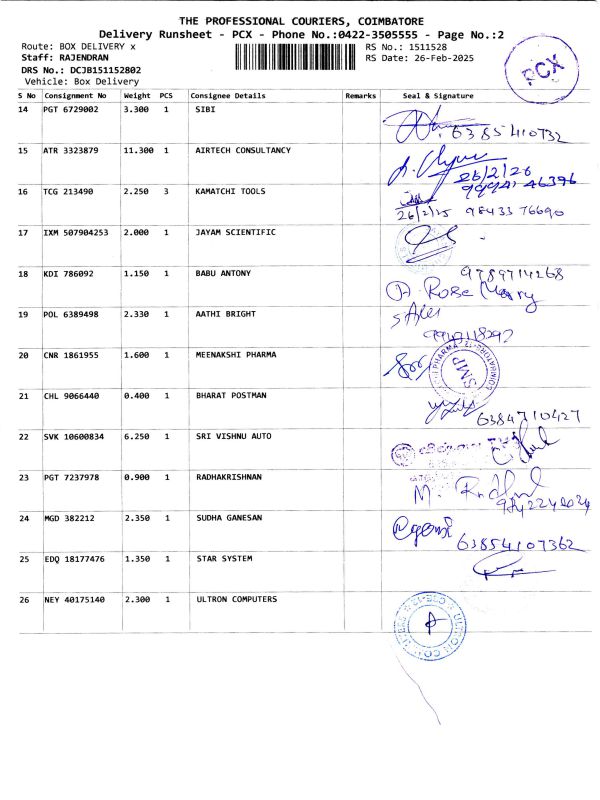 THE PROFESSIONAL COURIERS, COIMBATORE
Delivery Runsheet - PCX - Phone No.:0422-3505555 - Page No.:2
Route: BOX DELIVERY x RS No.: 1511528
Staff: RAJENDRAN RS Date: 26-Feb-2025
DRS No.: DCJB151152802
Vehicle: Box Delivery
PCX
S No Consignment No Weight PCS Consignee Details Remarks Seal & Signature
14 PGT 6729002 3.300 1 SIBI
6385410732
15 ATR 3323879 11.300 1 AIRTECH CONSULTANCY
26/2/26
9994146396
16 TCG 213490 2.250 3 KAMATCHI TOOLS
26/2/25 98433 76690
17 IXM 507904253 2.000 1 JAYAM SCIENTIFIC
18 KDI 786092 1.150 1 BABU ANTONY
9789714268
A. Rose Mary
19 POL 6389498 2.330 1 AATHI BRIGHT
20 CNR 1861955 1.600 1 MEENAKSHI PHARMA
SMP
21 CHL 9066440 0.400 1 BHARAT POSTMAN
6384710427
22 SVK 10600834 6.250 1 SRI VISHNU AUTO
23 PGT 7237978 0.900 1 RADHAKRISHNAN
24 MGD 382212 2.350 1 SUDHA GANESAN
63854107362
25 EDQ 18177476 1.350 1 STAR SYSTEM
26 NEY 40175140 2.300 1 ULTRON COMPUTERS